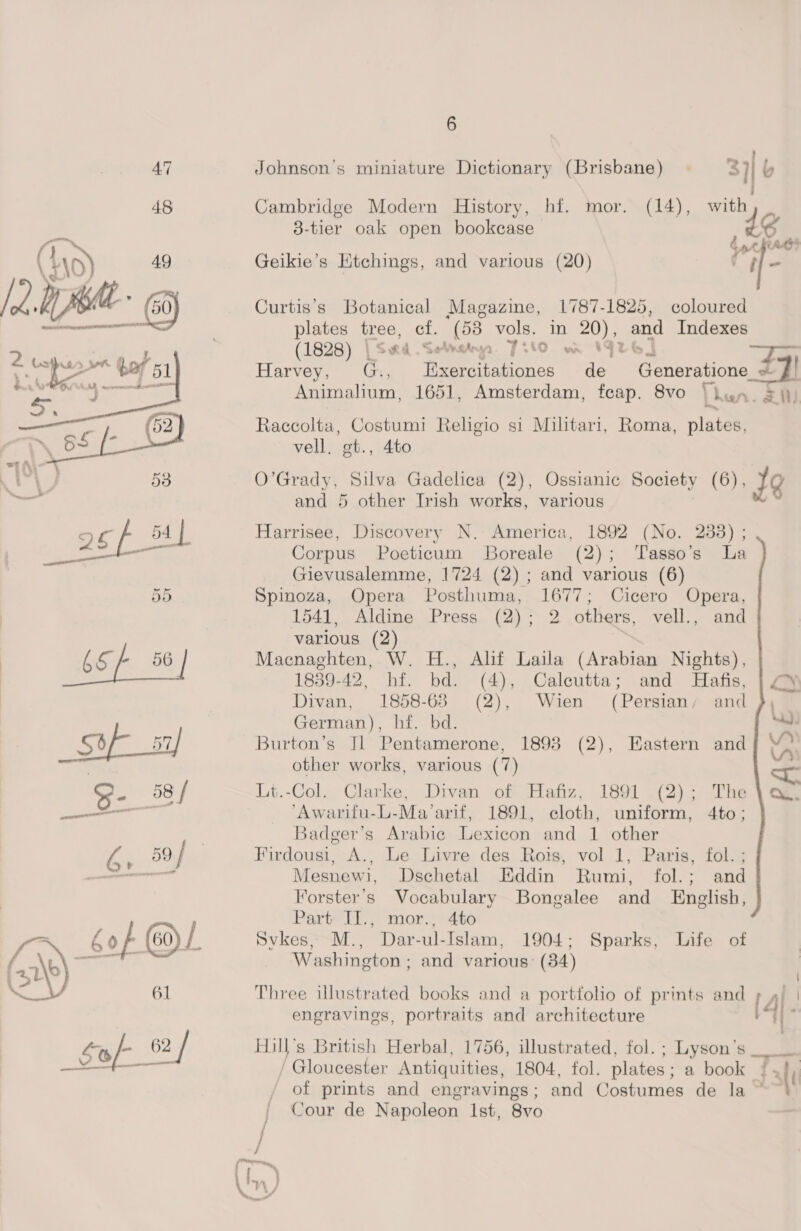 6
47 Johnson's miniature Dictionary (Brisbane) 37| 6
48 Cambridge Modern History, hf. mor. (14), with
3-tier oak open bookcase
49 Geikie's Etchings, and various (20)
50 Curtis's Botanical Magazine, 1787-1825, coloured
plates tree, cf. (53 vols. in 20), and Indexes
(1828)
51 Harvey, G., Exercitationes de Generatione
Animalium, 1651, Amsterdam, fcap. 8vo
52 Raccolta, Costumi Religio si Militari, Roma, plates,
vell. gt., 4to
53 O'Grady, Silva Gadelica (2), Ossianic Society (6),
and 5 other Irish works, various
25/- 54 Harrisee, Discovery N. America, 1892 (No. 233);
Corpus Poeticum Boreale (2); Tasso's La
Gievusalemme, 1724 (2); and various (6)
55 Spinoza, Opera Posthuma, 1677; Cicero Opera,
1541, Aldine Press (2); 2 others, vell., and
various (2)
65/- 56 Macnaghten, W. H., Alif Laila (Arabian Nights),
1839-42, hf. bd. (4), Calcutta; and Hafis,
Divan, 1858-63 (2), Wien (Persian, and
German), hf. bd.
57 Burton's Il Pentamerone, 1893 (2), Eastern and
other works, various (7)
58 Lt.-Col. Clarke, Divan of Hafiz, 1891 (2); The
'Awarifu-L-Ma'arif, 1891, cloth, uniform, 4to;
Badger's Arabic Lexicon and 1 other
59 Firdousi, A., Le Livre des Rois, vol 1, Paris, fol.;
Mesnewi, Dschetal Eddin Rumi, fol.; and
Forster's Vocabulary Bongalee and English,
Part II., mor., 4to
60 Sykes, M., Dar-ul-Islam, 1904; Sparks, Life of
Washington; and various (34)
61 Three illustrated books and a portfolio of prints and
engravings, portraits and architecture
62 Hill's British Herbal, 1756, illustrated, fol.; Lyson's
Gloucester Antiquities, 1804, fol. plates; a book
of prints and engravings; and Costumes de la
Cour de Napoleon 1st, 8vo